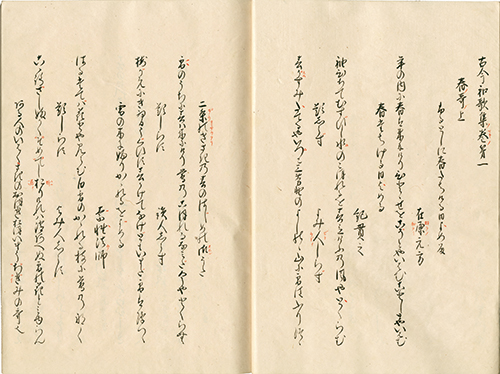 古今和歌集巻第一
春哥上
ふるとしに春たちける日よめる
在原元方
年の内に春は来にけりひとゝせをこそとやいはむことしとやいはむ
春たちける日よめる
紀貫之
袖ひちてむすひし水のこほれるを春立けふの風やとくらむ
題しらす
よみ人しらす
春霞たてるやいつこみよしのゝよしのゝ山に雪はふりつゝ
二条のきさきの春のはしめの御うた
雪のうちに春は来にけり鶯のこほれる泪今やとくらむ
題しらす
読人しらす
梅かえにきゐる鶯春かけてなけともいまた雪はふりつゝ
雪の木にふりかゝれるをよめる
素性法師
春たては花とや見らむ白雪のかゝれる枝に鶯のなく
題しらす
よみ人しらす
心さしふかくそめてし折けれはきえあへぬ雪の花と見ゆらむ
ある人のいはくさきのおほきおほいまうちきみの哥也